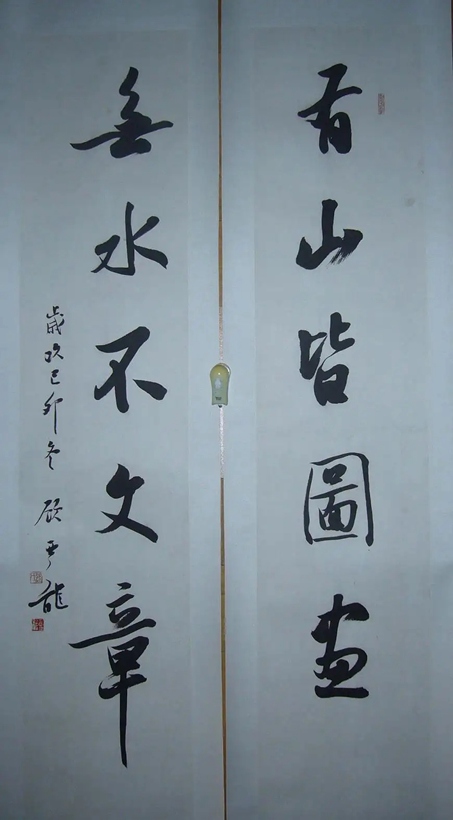 有山皆圖畫
無水不文章
歲次己卯冬